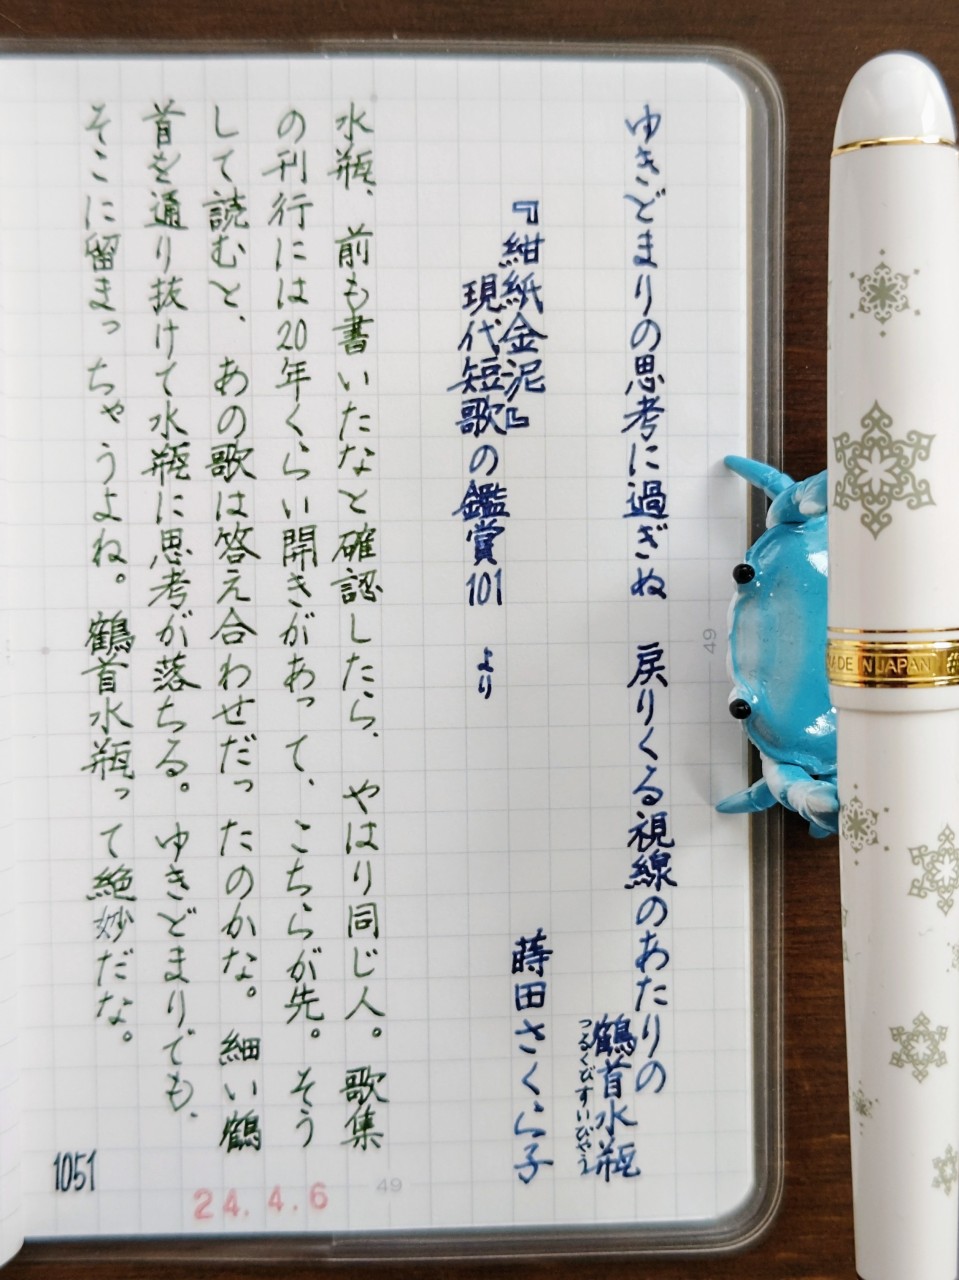 ゆきどまりの思考に過ぎぬ　戻りくる視線のあたりの
鶴首水瓶
つるくびすいびやう
蒔田さくら子
『紺紙金泥』
現代短歌の鑑賞101　より
水瓶、前も書いたなと確認したら、やはり同じ人。歌集
の刊行には20年くらい開きがあって、こちらが先。そう
して読むと、あの歌は答え合わせだったのかな。細い鶴
首を通り抜けて水瓶に思考が落ちる。ゆきどまりでも、
そこに留まっちゃうよね。鶴首水瓶って絶妙だな。
1051
24.4.6
49
49
MADE IN JAPAN